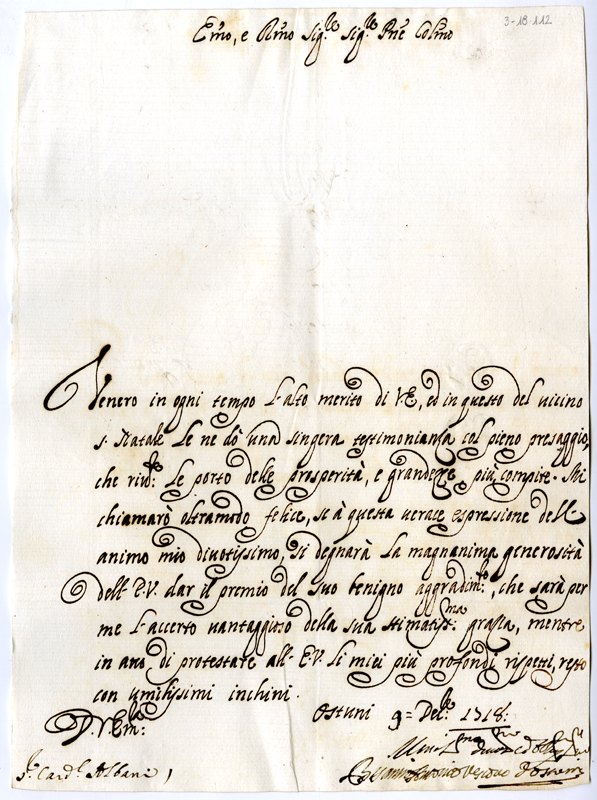 3-18-112
Em̃o, e Rm̃o Sig.re Sig.re Pñe Colm̃o
Venero in ogni tempo l'alto merito di VE, ed in questo del vicino
S. Natale Le ne dò una singera testimonianza col pieno presaggio,
che riv.te Le porto delle prosperità, e grandezze più compite. Mi
chiamarò oltramodo felice, se à questa verace espressione dell'
animo mio divotissimo, si degnarà la magnanima generosità
dell'E.V. dar il premio del suo benigno aggradim.to, che sarà per
me l'accerto vantaggioso della sua stimatiss.ma grazia, mentre
in atto di protestare all'E.V. li miei più profondi rispetti, resto
con umilissimi inchini.
D.V.Em.za Ostuni 9 = De.bre 1718:
S.r Card.l Albani
Vescovo d'Ostuni